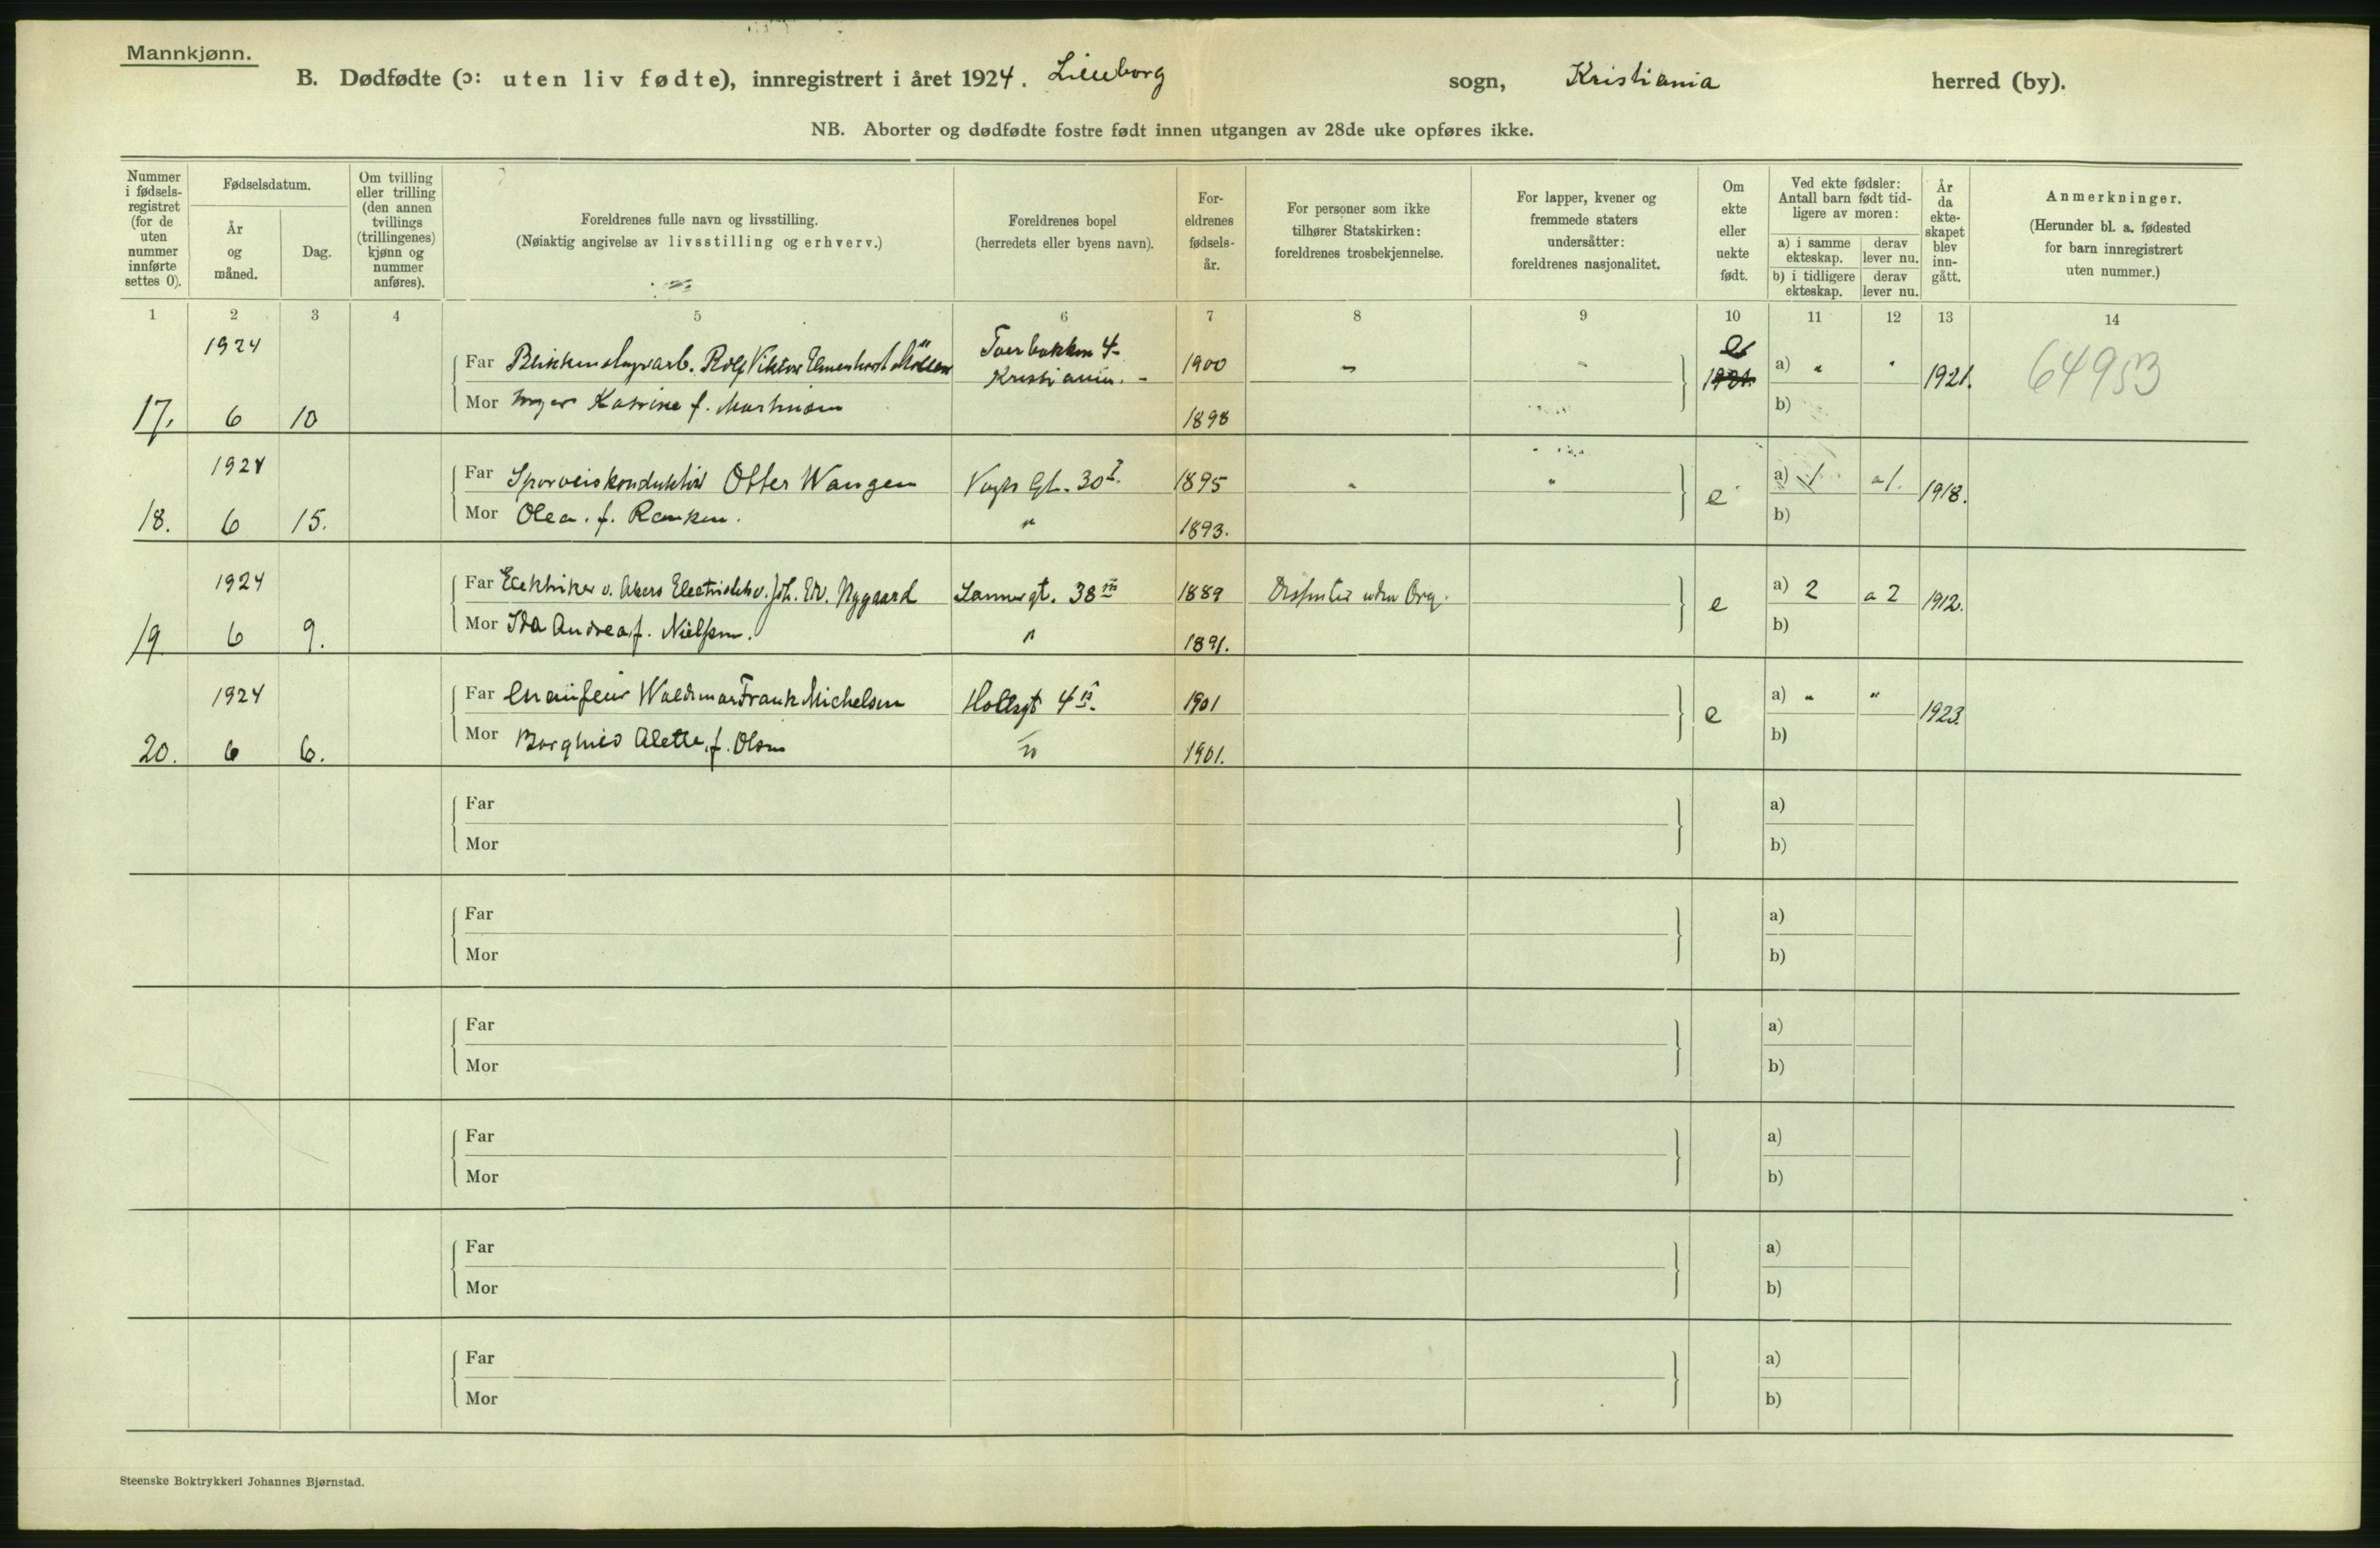 Mannkjønn.
B. Dødfødte (ɔ: uten liv fødte), innregistrert i året 1924. Lilleborg sogn, Kristiania herred (by).
NB. Aborter og dødfødte fostre født innen utgangen av 28de uke opføres ikke.
Nummer i fødsels-registret (for de uten nummer innførte settes 0).
Fødselsdatum.
År og måned.
Dag.
Om tvilling eller trilling (den annen tvillings (trillingenes) kjønn og nummer anføres).
Foreldrenes fulle navn og livsstilling.
(Nøiaktig angivelse av livsstilling og erhverv.)
Foreldrenes bopel
(herredets eller byens navn).
For-eldrenes fødsels-år.
For personer som ikke tilhører Statskirken: foreldrenes trosbekjennelse.
For lapper, kvener og fremmede staters undersåtter: foreldrenes nasjonalitet.
Om ekte eller uekte født.
Ved ekte fødsler: Antall barn født tid-ligere av moren:
a) i samme ekteskap.
derav lever nu.
b) i tidligere ekteskap.
derav lever nu.
År da ekte-skapet blev inn-gått.
Anmerkninger.
(Herunder bl. a. fødested for barn innregistrert uten nummer.)
1 2 3 4 5 6 7 8 9 10 11 12 13 14
1924 Far Rolf Viktor 4 1900 " " e a) " " 1921. 64953
Kristiania. -
17. 6 10 Mor Katrine f. Martinsen 1898 b)
1924 Far Sporveiskonduktør Otter Wangen Vogts Gt. 30 1895 " " e a) 1 a 1. 1918.
18. 6 15. Mor Olea. f. " 1893. b)
1924 Far Elektriker v. Akers Joh. Edv. Nygaard 38 1889 Dissenter uten Org. e a) 2 a 2 1912.
19 6 9. Mor Ida Andrea f. Nielsen. " 1891. b)
1924 Far Chauffeur Waldemar Frank Michelsen 4 1901 e a) " " 1923.
20. 6 6. Mor Borghild Alette f. Olsen 1901. b)
Far a)
Mor b)
Far a)
Mor b)
Far a)
Mor b)
Far a)
Mor b)
Far a)
Mor b)
Far a)
Mor b)
Steenske Boktrykkeri Johannes Bjørnstad.